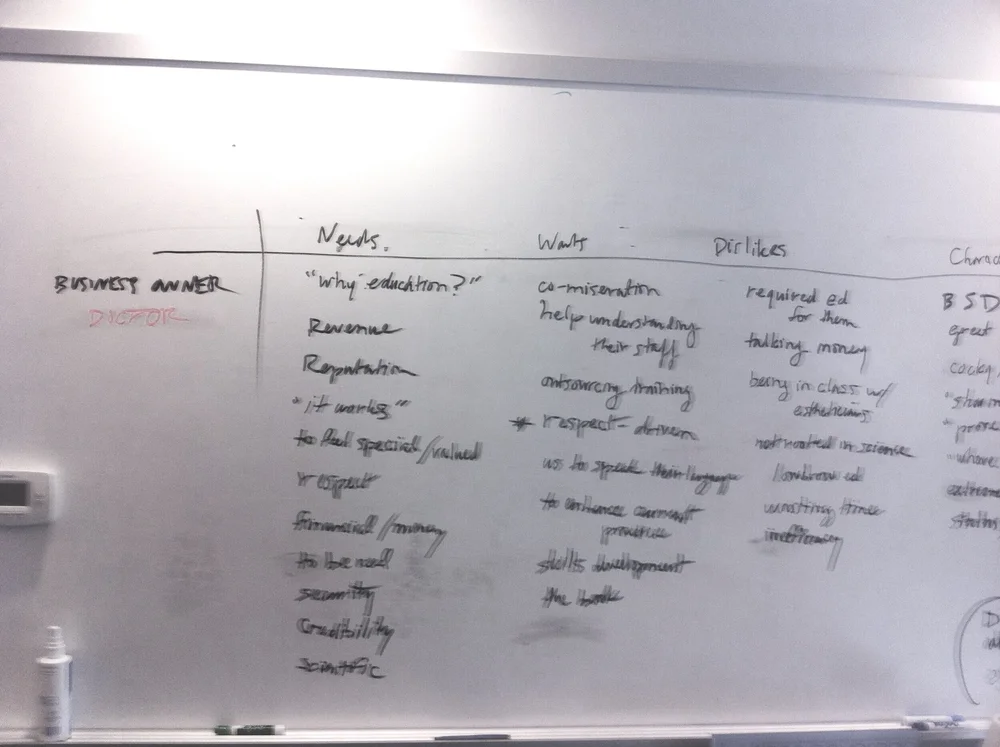 Needs.
Wants
Dislikes
Charac
BUSINESS OWNER
DOCTOR
"why education?"
Revenue
Reputation
"it works"
to feel special/valued
respect
financial/money
to be need
security
Credibility
scientific
co-miseration
help understanding
their staff
outsourcing training
* respect-driven
us to speak their language
to enhance current
practice
skills development
the
required ed
for them
talking money
being in class w/
estheticians
not rooted in science
lowbrow ed
wasting time
inefficiency
BSD
great
cocky
"prove
extreme
status